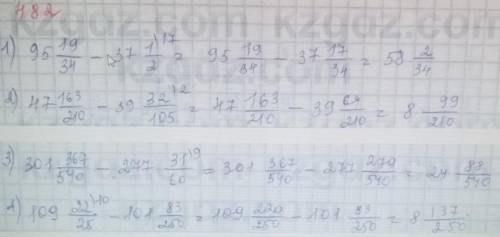 482
1) 95 19/34 - 37 1/2 \17 = 95 19/34 - 37 17/34 = 58 2/34
2) 47 163/210 - 39 32/105 \2 = 47 163/210 - 39 64/210 = 8 99/210
3) 301 367/540 - 277 31/60 \9 = 301 367/540 - 277 279/540 = 24 88/540
4) 109 22/25 \10 - 101 83/250 = 109 220/250 - 101 83/250 = 8 137/250